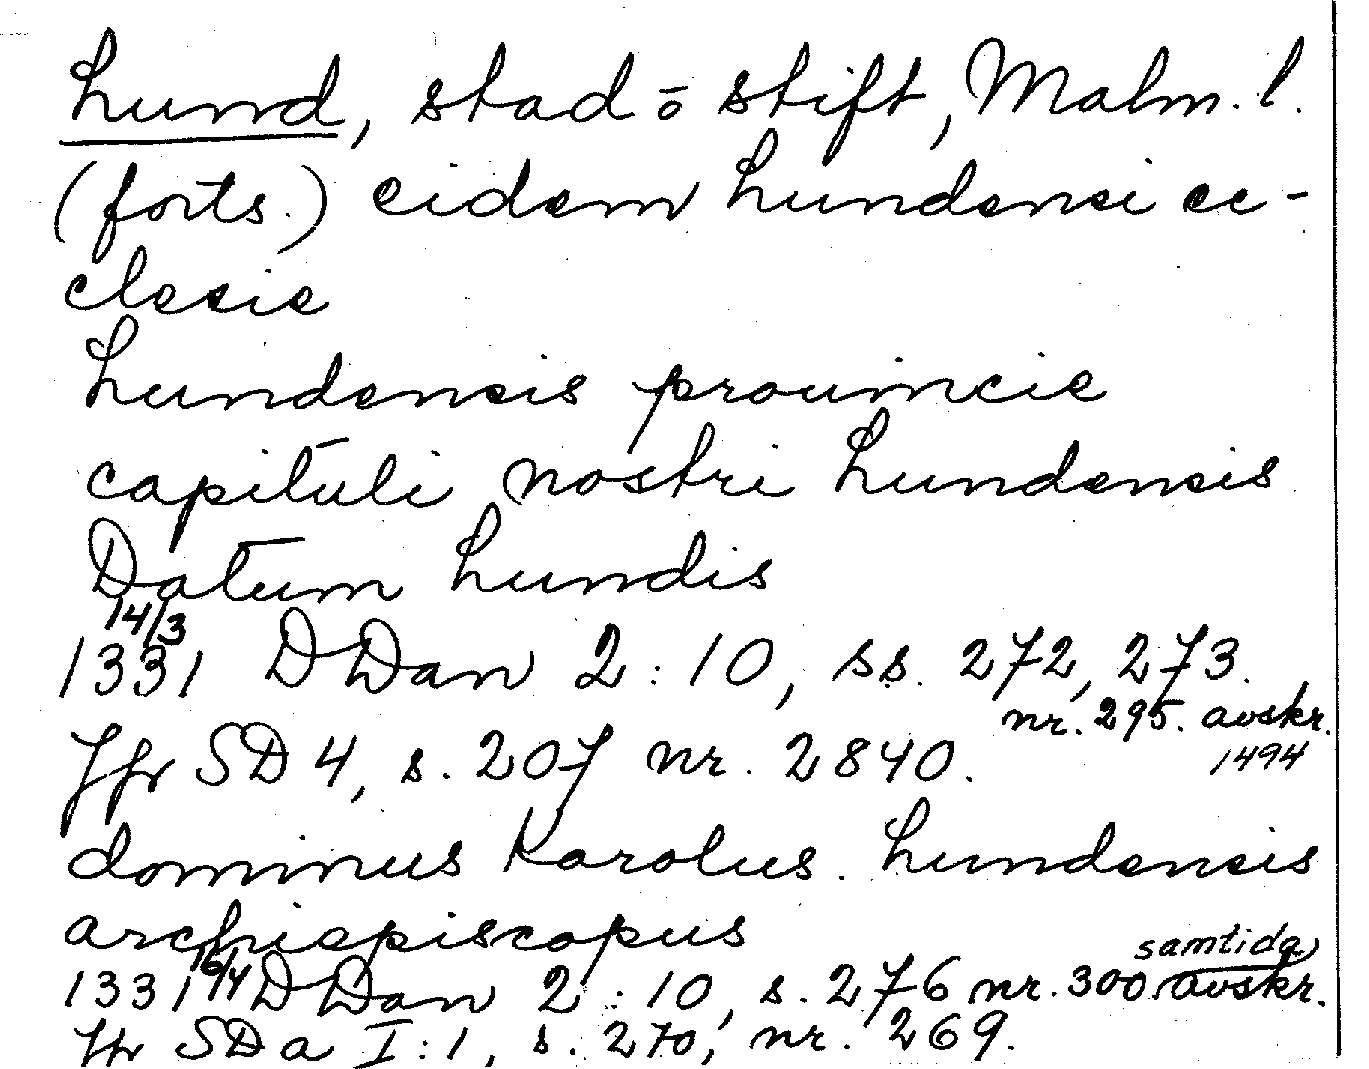 Lund, stad o stift, Malm. l.
(forts.) eidem Lundensi ec-
clesie
Lundensis prouincie
capituli nostri Lundensis
Datum Lundis
14/3
1331 DDan 2:10, ss. 272, 273.
nr. 295. avskr.
1494
Jfr SD 4, s. 207 nr. 2840.
dominus Karolus. Lundensis
archiepiscopus
samtida
1331 16/4 DDan 2:10, s. 276 nr. 300. avskr.
Jfr SDa I:1, s. 270, nr. 269.